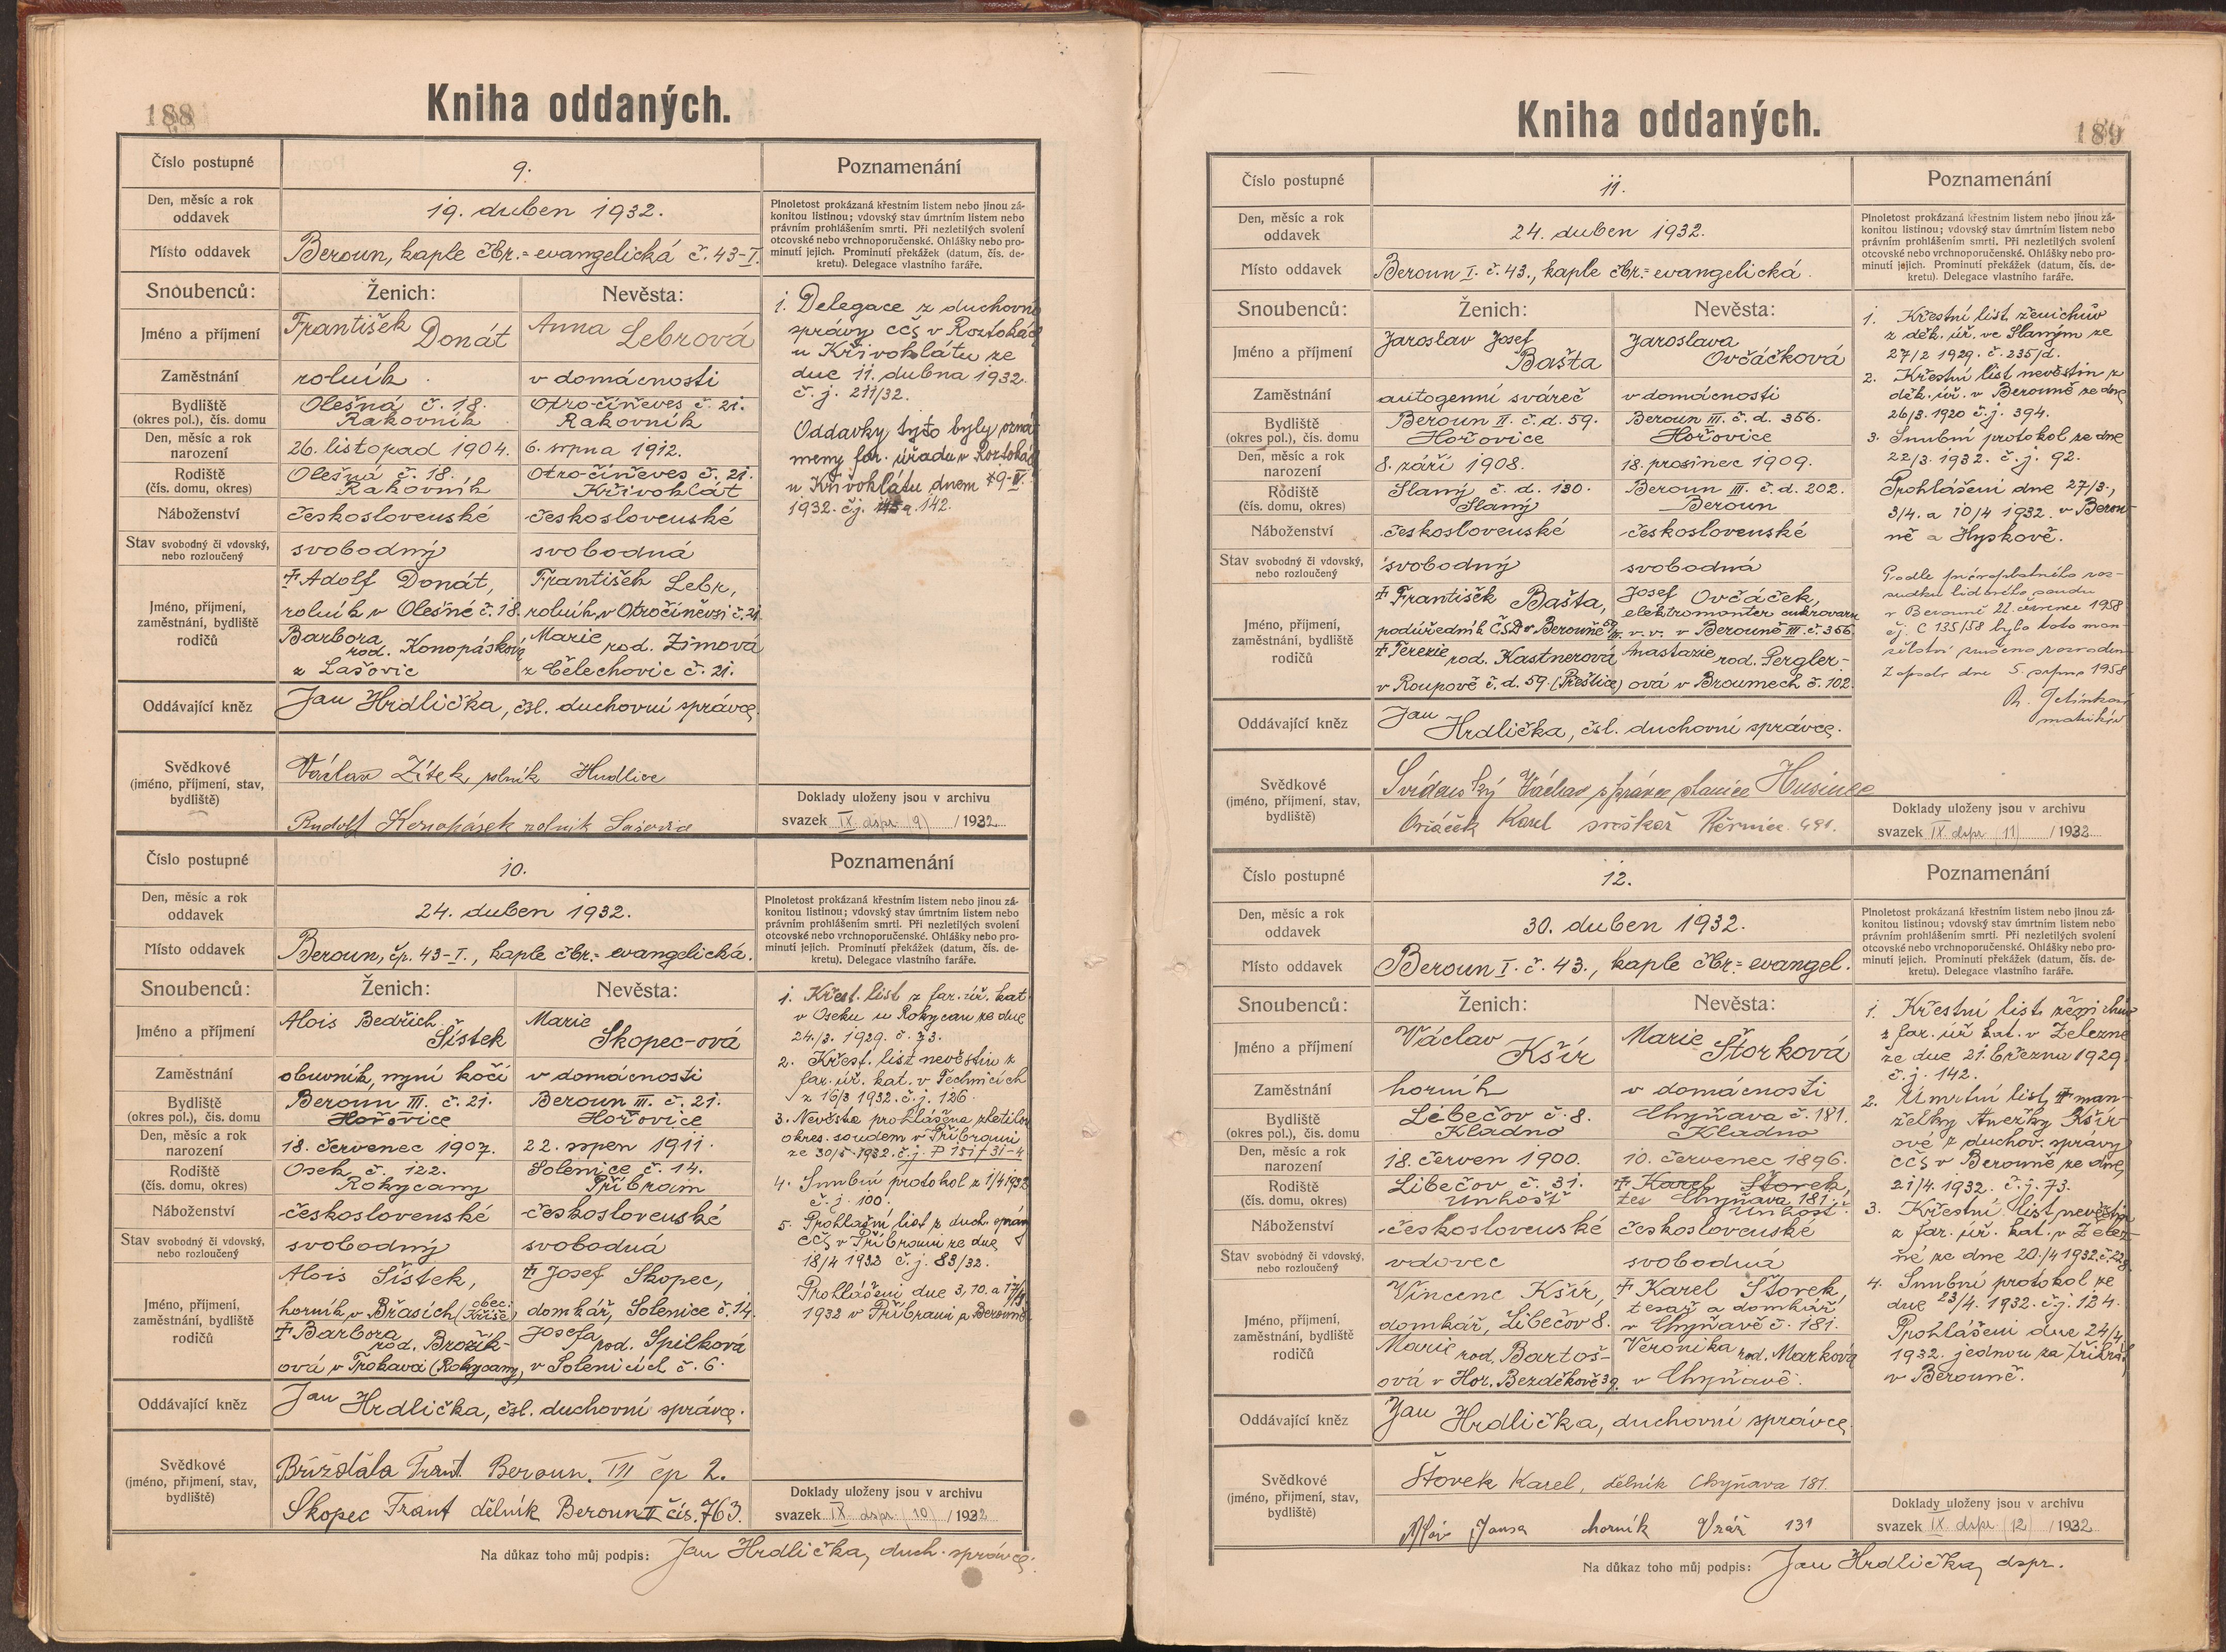 188
Kniha oddaných.
Číslo postupné
9.
Poznamenání
Den, měsíc a rok
oddavek
19. duben 1932.
Plnoletost prokázaná křestním listem nebo jinou zá-
konitou listinou; vdovský stav úmrtním listem nebo
právním prohlášením smrti. Při nezletilých svolení
otcovské nebo vrchnoporučenské. Ohlášky nebo pro-
minutí jejich. Prominutí překážek (datum, čís. de-
kretu). Delegace vlastního faráře.
Místo oddavek
Beroun, kaple čbr.=evangelická č. 43-I.
Snoubenců: Ženich: Nevěsta:
Jméno a příjmení
František Donát
Anna Lebrová
Zaměstnání
rolník
v domácnosti
Bydliště
(okres pol.), čís. domu
Olešná č. 18.
Rakovník
Otročíněves č. 21.
Rakovník
Den, měsíc a rok
narození
26. listopad 1904.
6. srpna 1912.
Rodiště
(čís. domu, okres)
Olešná č. 18.
Rakovník
Otročíněves č. 21.
Křivoklát
Náboženství
československé
československé
Stav svobodný či vdovský,
nebo rozloučený
svobodný
svobodná
Jméno, příjmení,
zaměstnání, bydliště
rodičů
Adolf Donát,
rolník v Olešné č. 18.
Barbora
rod. Konopásková
z Lašovic
František Lebr,
rolník v Otročíněvsi č. 21.
Marie rod. Zímová
z Čelechovic č. 21.
Oddávající kněz
Jan Hrdlička, čsl. duchovní správce.
Svědkové
(jméno, příjmení, stav,
bydliště)
Václav Zítek rolník Hudlice
Rudolf Konopásek rolník Lašovice
1. Delegace z duchovní
správy CČS v Roztokách
u Křivoklátu ze
dne 11. dubna 1932.
č. j. 211/32.
Oddavky tyto byly ozná-
meny far. úřadu v Roztokách
u Křivoklátu dnem 19-IV.
1932. čj. 142.
Doklady uloženy jsou v archivu
svazek IX. dspr (9) /1932
Číslo postupné
10.
Poznamenání
Den, měsíc a rok
oddavek
24. duben 1932.
Plnoletost prokázaná křestním listem nebo jinou zá-
konitou listinou; vdovský stav úmrtním listem nebo
právním prohlášením smrti. Při nezletilých svolení
otcovské nebo vrchnoporučenské. Ohlášky nebo pro-
minutí jejich. Prominutí překážek (datum, čís. de-
kretu). Delegace vlastního faráře.
Místo oddavek
Beroun, čp. 43-I., kaple čbr.=evangelická.
Snoubenců: Ženich: Nevěsta:
Jméno a příjmení
Alois Bedřich
Šístek
Marie
Skopec-ová
Zaměstnání
obuvník, nyní kočí
v domácnosti
Bydliště
(okres pol.), čís. domu
Beroun III. č. 21.
Hořovice
Beroun III. č. 21.
Hořovice
Den, měsíc a rok
narození
18. červenec 1907.
22. srpen 1911.
Rodiště
(čís. domu, okres)
Osek č. 122.
Rokycany
Solenice č. 14.
Příbram
Náboženství
československé
československé
Stav svobodný či vdovský,
nebo rozloučený
svobodný
svobodná
Jméno, příjmení,
zaměstnání, bydliště
rodičů
Alois Šístek,
horník v Břasích (obec Kříše)
Barbora
rod. Brožík-
ová v Trokavci (Rokycany)
Josef Skopec,
domkář, Solenice č. 14.
Josefa rod. Spilková
v Solenicích č. 6.
Oddávající kněz
Jan Hrdlička, čsl. duchovní správce.
Svědkové
(jméno, příjmení, stav,
bydliště)
Břížďala Frant. Beroun. III čp 2.
Skopec Frant dělník Beroun II čís. 763.
1. Křest. list z far. úř. kat
v Oseku u Rokycan ze dne
24./3. 1929. č. 73.
2. Křest. list nevěstin z
far. úř. kat. v Těchnicích
z 16/3 1932. č. j. 126.
3. Nevěsta prohlášena zletilou
okres. soudem v Příbrami
ze 30/5 1932. č. j. P 151/31-4
4. Snubní protokol z 1/4 1932
č. j. 100.
5. Prohlašní list z duch. správy
CČS v Příbrami ze dne
18/4 1932 č. j. 83/32.
Prohlášeni dne 3, 10. a 17/4
1932 v Příbrami a Berouně
Doklady uloženy jsou v archivu
svazek IX. dspr (10) /1932
Na důkaz toho můj podpis: Jan Hrdlička, duch. správce.
189
Kniha oddaných.
Číslo postupné
11.
Poznamenání
Den, měsíc a rok
oddavek
24. duben 1932.
Plnoletost prokázaná křestním listem nebo jinou zá-
konitou listinou; vdovský stav úmrtním listem nebo
právním prohlášením smrti. Při nezletilých svolení
otcovské nebo vrchnoporučenské. Ohlášky nebo pro-
minutí jejich. Prominutí překážek (datum, čís. de-
kretu). Delegace vlastního faráře.
Místo oddavek
Beroun I. č. 43., kaple čbr.=evangelická.
Snoubenců: Ženich: Nevěsta:
Jméno a příjmení
Jaroslav Josef
Bašta
Jaroslava
Ovčáčková
Zaměstnání
autogenní svářeč
v domácnosti
Bydliště
(okres pol.), čís. domu
Beroun II. č. d. 59.
Hořovice
Beroun III. č. d. 356.
Hořovice
Den, měsíc a rok
narození
8. září 1908.
18. prosinec 1909.
Rodiště
(čís. domu, okres)
Slaný č. d. 130.
Slaný
Beroun III. č. d. 202.
Beroun
Náboženství
československé
československé
Stav svobodný či vdovský,
nebo rozloučený
svobodný
svobodná
Jméno, příjmení,
zaměstnání, bydliště
rodičů
František Bašta,
podúředník ČSD v Berouně 59/II.
Terezie rod. Kastnerová
v Roupově č. d. 59. (Přeštice)
Josef Ovčáček,
elektromonter cukrovaru
v. v. v Berouně III. č. 356.
Anastazie rod. Pergler-
ová v Broumech č. 102.
Oddávající kněz
Jan Hrdlička, čsl. duchovní správce.
Svědkové
(jméno, příjmení, stav,
bydliště)
Svídenský Václav správce stanice Husinec
Ovčáček Karel Běrnice 491.
1. Křestní list ženichův
z děk. úř. ve Slaným ze
27/2 1929. č. 235/d.
2. Křestní list nevěstin z
děk. úř. v Berouně ze dne
26/3. 1920 č. j. 394.
3. Snubní protokol ze dne
22/3. 1932. č. j. 92.
Prohlášeni dne 27/3.,
3/4. a 10/4 1932. v Berou-
ně a Hyskově.
Podle pravoplatného roz-
sudku lidového soudu
v Berouně 22. července 1958
čj. C 135/58 bylo toto man-
želství zrušeno rozvodem
Zapsáno dne 5. srpna 1958
R. Jelínková
matrikář
Doklady uloženy jsou v archivu
svazek IX. dspr (11) /1932
Číslo postupné
12.
Poznamenání
Den, měsíc a rok
oddavek
30. duben 1932.
Plnoletost prokázaná křestním listem nebo jinou zá-
konitou listinou; vdovský stav úmrtním listem nebo
právním prohlášením smrti. Při nezletilých svolení
otcovské nebo vrchnoporučenské. Ohlášky nebo pro-
minutí jejich. Prominutí překážek (datum, čís. de-
kretu). Delegace vlastního faráře.
Místo oddavek
Beroun I. č. 43., kaple čbr.=evangel.
Snoubenců: Ženich: Nevěsta:
Jméno a příjmení
Václav
Kšír
Marie
Štorková
Zaměstnání
horník
v domácnosti
Bydliště
(okres pol.), čís. domu
Libečov č. 8.
Kladno
Chyňava č. 181.
Kladno
Den, měsíc a rok
narození
18. červen 1900.
10. červenec 1896.
Rodiště
(čís. domu, okres)
Libečov č. 31.
Unhošť
Karel Štorek,
tes Chyňava 181.
Unhošť
Náboženství
československé
československé
Stav svobodný či vdovský,
nebo rozloučený
vdovec
svobodná
Jméno, příjmení,
zaměstnání, bydliště
rodičů
Vincenc Kšír,
domkář, Libečov 8.
Marie rod. Bartoš-
ová v Hor. Bezděkově 39.
Karel Štorek,
tesař a domkář
v Chyňavě č. 181.
Veronika rod. Marková
v Chyňavě.
Oddávající kněz
Jan Hrdlička, duchovní správce
Svědkové
(jméno, příjmení, stav,
bydliště)
Štorek Karel, dělník Chyňava 181.
Alois Jansa horník Vráž 131
1. Křestní list ženichův
z far. úř kat. v Železné
ze dne 21. března 1929.
č. j. 142.
2. Úmrtní list man-
želky Anežky Kšír-
ové z duchov. správy
CČS v Berouně ze dne
21/4. 1932. č. j. 73.
3. Křestní list nevěstin
z far. úř. kat. v Želez-
né ze dne 20./4 1932. č. 228
4. Snubní protokol ze
dne 23/4. 1932. č. j. 124.
Prohlášeni dne 24/4.
1932. jednou za třikrát
v Berouně.
Doklady uloženy jsou v archivu
svazek IX. dspr. (12) /1932
Na důkaz toho můj podpis: Jan Hrdlička, dspr.